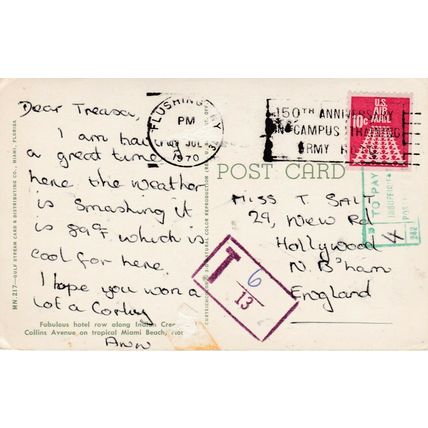 Dear Treasa,
I am having
a great time
here the weather
is smashing it
is 89°F which is
cool for here.
I hope you won a
lot a Corley
Ann
Fabulous hotel row along Indian
Collins Avenue on tropical Miami Beach,
MN. 217—GULF STREAM CARD & DISTRIBUTING CO., MIAMI, FLORIDA
FLUSHING, N.Y.
PM
JUL
1970
150TH
CAMPUS TRAINING
ARMY
U.S.
AIR
MAIL
10c
POST CARD
Miss T Salt
29, View Rd
Hollywood
N. B'ham
England
T
6
13
TO PAY
4